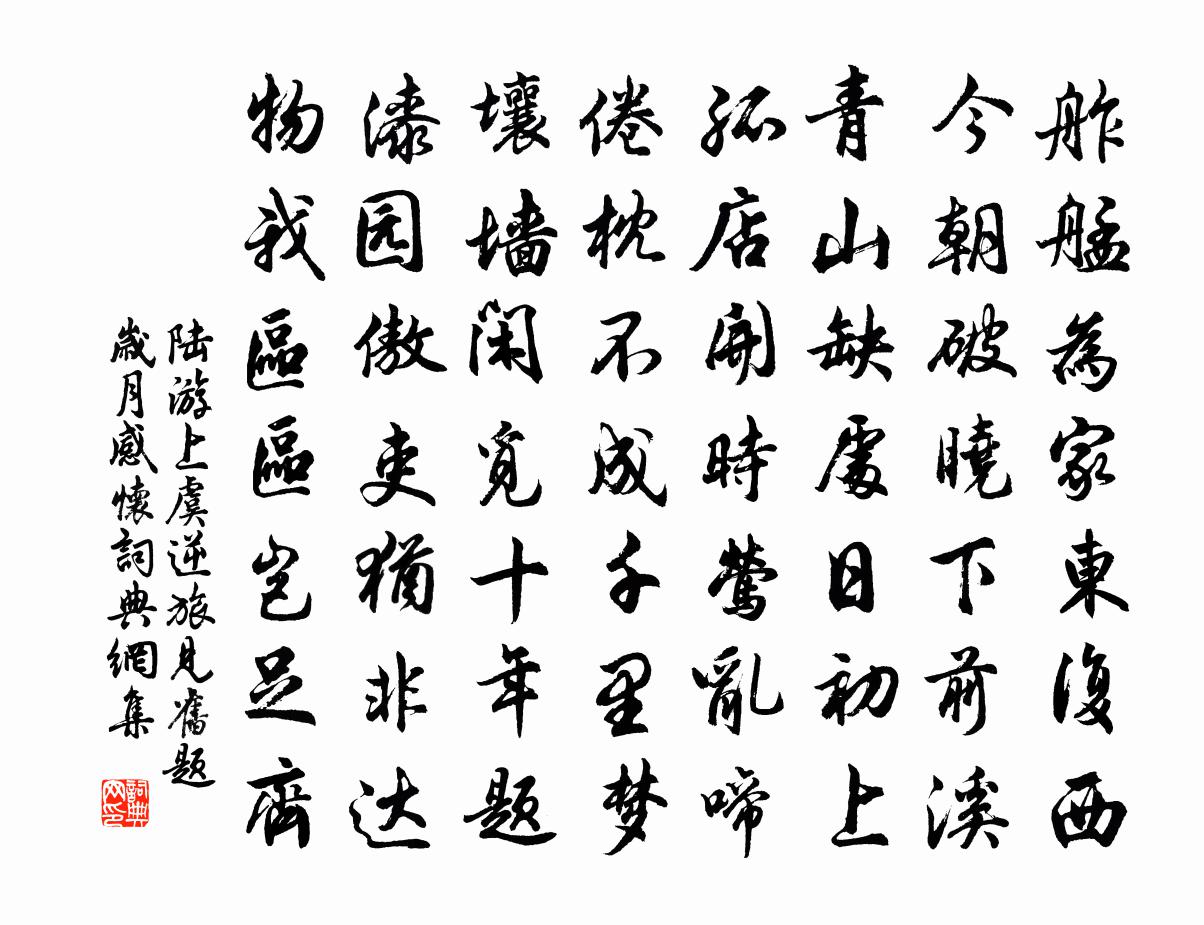 舴艋為家東復西
今朝破曉下前溪
青山缺處日初上
孤店開時鶯亂啼
倦枕不成千里梦
壞墙閑覓十年題
漆园傲吏猶非达
物我區區豈足齊
陆游上虞逆旅見舊題
歲月感懷詞典網集
詞典
网印